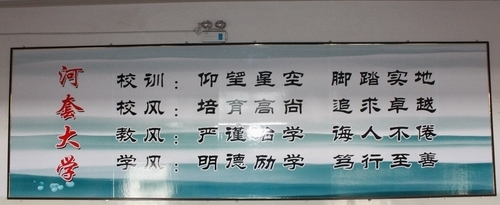 河套大学
校训：仰望星空 脚踏实地
校风：培育高尚 追求卓越
教风：严谨治学 诲人不倦
学风：明德励学 笃行至善